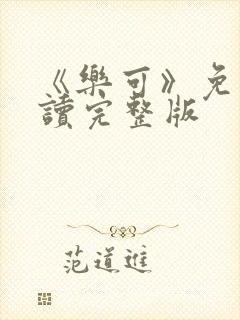 《樂可》免
讀完整版
范道進